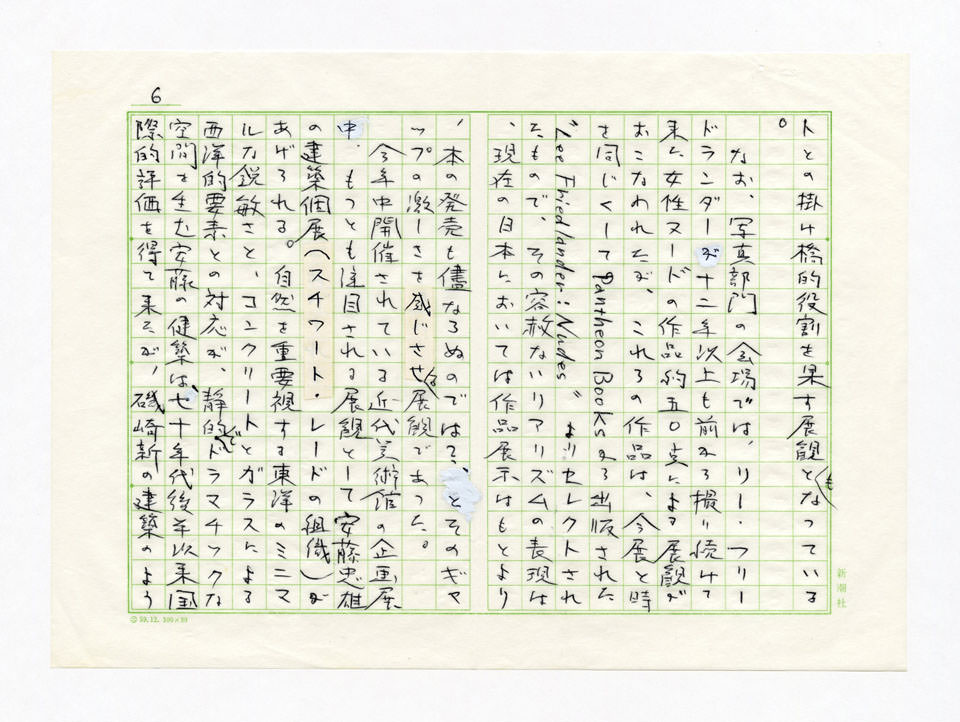 6
トとの掛け橋的役割を果す展観ともなっている
。
なお、写真部門の会場では、リー・フリー
ドランダーが十二年以上も前から撮り続けて
来た女性ヌードの作品約五〇点による展観が
おこなわれたが、これらの作品は、今展と時
を同じくして Pantheon Books から出版された
"Lee Friedlander: Nudes" よりセレクトされ
たもので、その容赦ないリアリズムの表現は
、現在の日本においては作品展示はもとより
、本の発売も儘ならぬのでは?、とそのギャ
ップの激しさを感じさせる展観であった。
今年中開催されている近代美術館の企画展
中、もっとも注目される展観として安藤忠雄
の建築個展(スチワート・レードの組織)が
あげられる。自然を重要視する東洋のミニマ
ルな鋭敏さと、コンクリートとガラスによる
西洋的要素との対応が、静的でドラマチックな
空間を生む安藤の健築は、七十年代後半以来国
際的評価を得て来たが、磯崎新の建築のよう
新潮社
59.12. 100×99